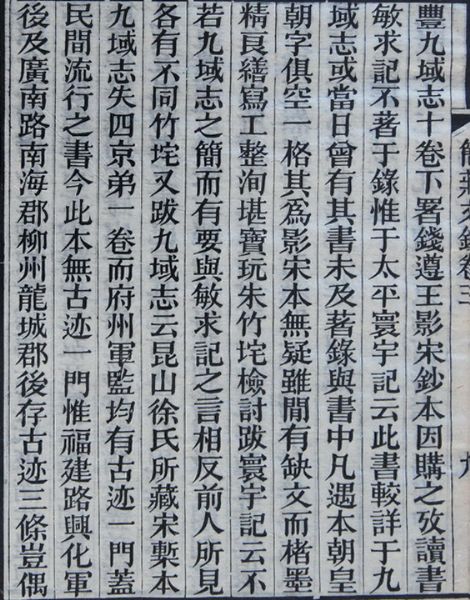 豐九域志十卷下署錢遵王影宋鈔本因購之攷讀書
敏求記不著于錄惟于太平寰宇記云此書較詳于九
域志或當日曾有其書未及著錄與書中凡遇本朝皇
朝字俱空一格其爲影宋本無疑雖閒有缺文而楮墨
精良繕寫工整洵堪寶玩朱竹垞檢討跋寰宇記云不
若九域志之簡而有要與敏求記之言相反前人所見
各有不同竹垞又跋九域志云昆山徐氏所藏宋槧本
九域志失四京弟一卷而府州軍監均有古迹一門蓋
民間流行之書今此本無古迹一門惟福建路興化軍
後及廣南路南海郡柳州龍城郡後存古迹三條豈偶